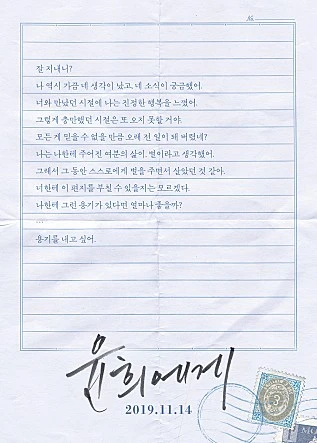 No.
잘 지내니?
나 역시 가끔 네 생각이 났고, 네 소식이 궁금했어.
너와 만났던 시절에 나는 진정한 행복을 느꼈어.
그렇게 충만했던 시절은 또 오지 못할 거야.
모든 게 믿을 수 없을 만큼 오래 전 일이 돼 버렸네?
나는 나한테 주어진 여분의 삶이, 벌이라고 생각했어.
그래서 그동안 스스로에게 벌을 주면서 살았던 것 같아.
너한테 이 편지를 부칠 수 있을지는 모르겠다.
나한테 그런 용기가 있다면 얼마나 좋을까?
...
용기를 내고 싶어.
윤희에게
2019.11.14
3
MO